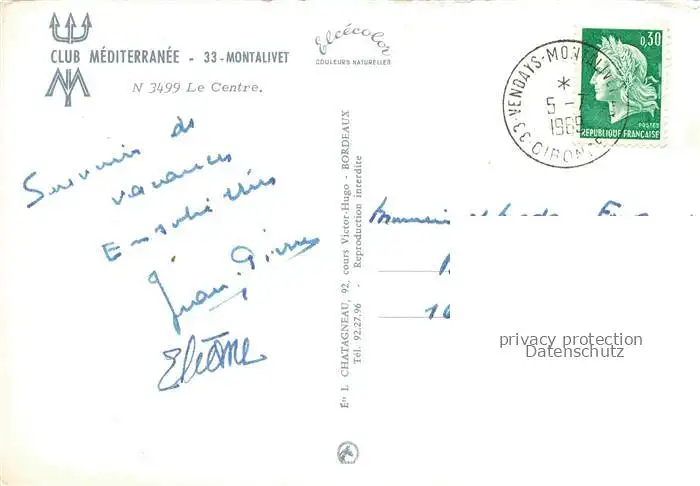 CLUB MÉDITERRANÉE - 33-MONTALIVET
N 3499 Le Centre.
Elcécolor
COULEURS NATURELLES
Souvenir de
vacances
Ensoleillées
Jean-Pierre
Ets L. CHATAGNEAU, 92, cours Victor-Hugo - BORDEAUX
Tél. 92.27.96 - Reproduction interdite
0,30
POSTES
REPUBLIQUE FRANÇAISE
33-VENDAYS-MONTALIVET
5 -7
1969
GIRONDE
Monsieur et
privacy protection
Datenschutz